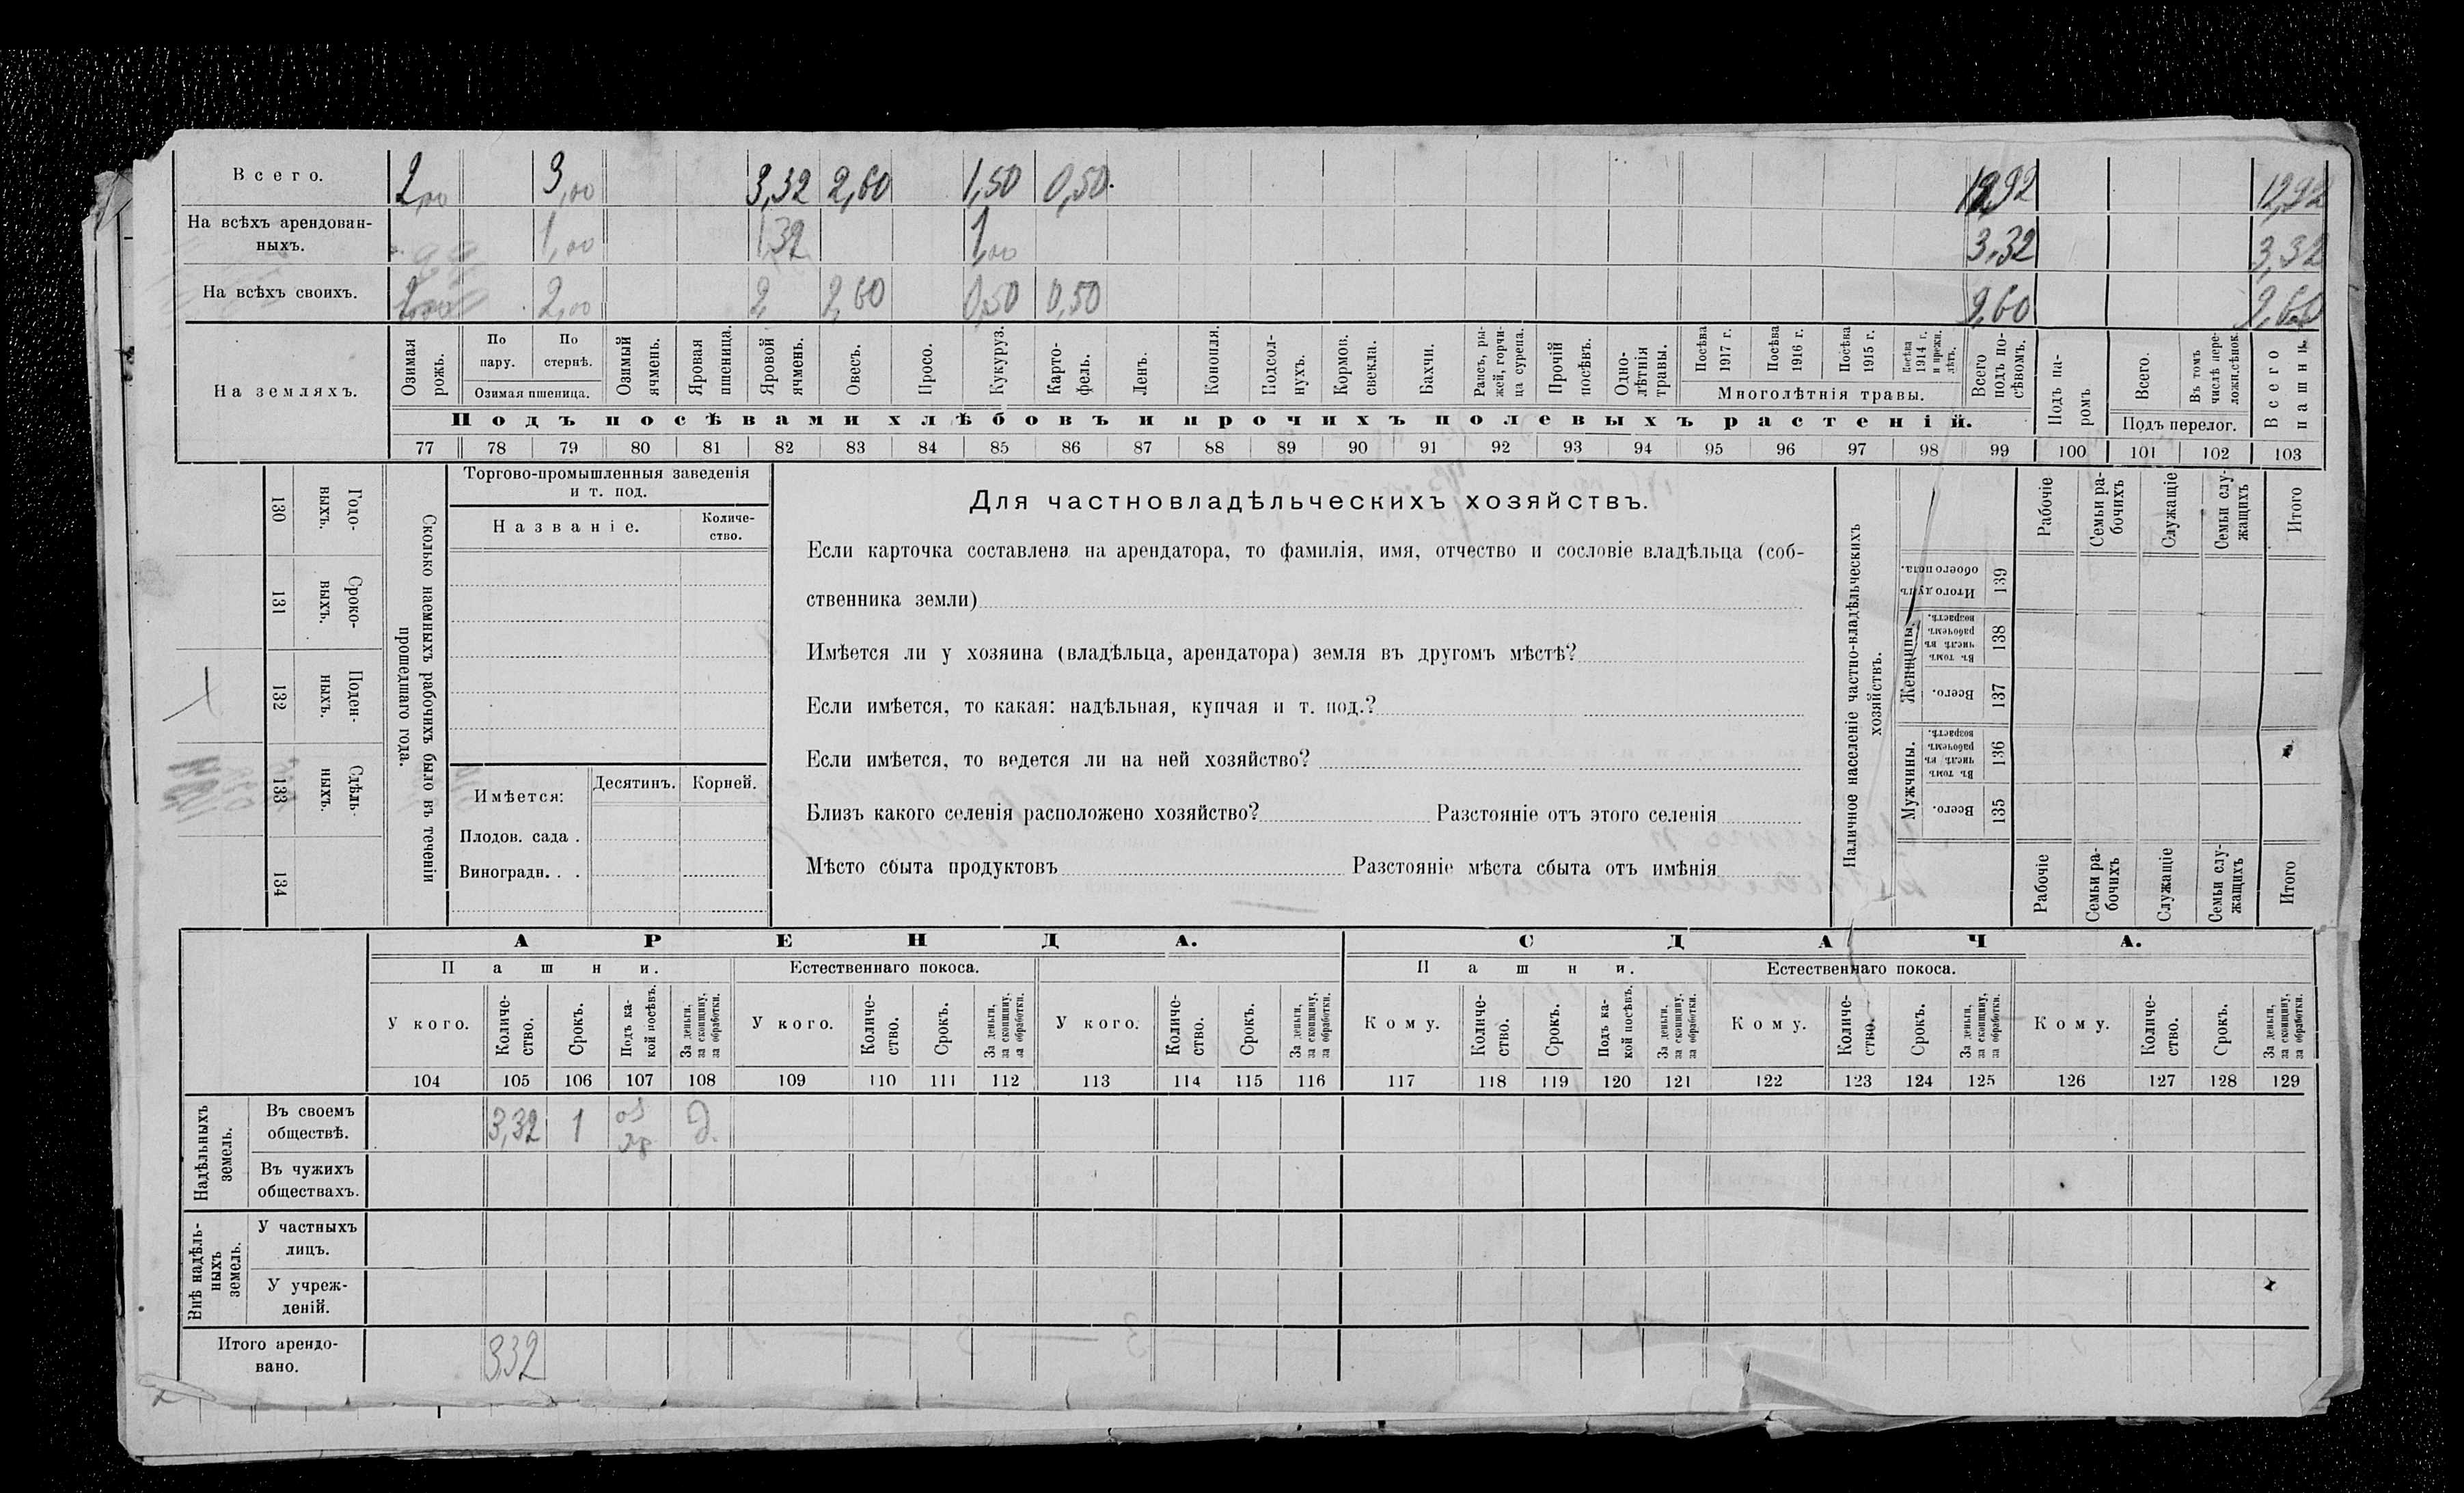 Всего. 2,00 3,00 3,32 2,60 1,50 0,50. 12,92 12,92
На всѣхъ арендован-
ныхъ. 1,00 1 32 1,00 3,32 3,32
На всѣхъ своихъ. 2,00 2,00 2 2,60 0,50 0,50 9,60 9,60
На земляхъ.
Озимая рожь.
По пару.
По стернѣ.
Озимая пшеница.
Озимый ячмень.
Яровая пшеница.
Яровой ячмень.
Овесъ.
Просо.
Кукуруз.
Карто-
фель.
Ленъ.
Конопля.
Подсол-
нухъ.
Кормов. свекла.
Бахчи.
Рапсъ, ры-
жей, горчи-
ца сурепа.
Прочій посѣвъ.
Одно-
лѣтнія травы.
Посѣва 1917 г.
Посѣва 1916 г.
Посѣва 1915 г.
Посѣва 1914 г. и прежн. лѣтъ.
Многолѣтнія травы.
Всего подъ по-
сѣвомъ.
Подъ па-
ромъ
Всего.
Въ томъ числѣ пере-
ложн.сѣнок.
Подъ перелог.
Всего пашни.
Подъ посѣвами хлѣбовъ и прочихъ полевыхъ растеній.
77 78 79 80 81 82 83 84 85 86 87 88 89 90 91 92 93 94 95 96 97 98 99 100 101 102 103
130 Годо-
выхъ.
131 Сроко-
выхъ.
132 Поден-
ныхъ.
133 Сдѣль-
ныхъ.
134
Сколько наемныхъ рабочихъ было въ теченіи
прошедшаго года.
Торгово-промышленныя заведенія
и т. под.
Названіе.
Количе-
ство.
Имѣется: Десятинъ. Корней.
Плодов. сада .
Виноградн. . .
Для частновладѣльческихъ хозяйствъ.
Если карточка составлена на арендатора, то фамилія, имя, отчество и сословіе владѣльца (соб-
ственника земли)
Имѣется ли у хозяина (владѣльца, арендатора) земля въ другомъ мѣстѣ?
Если имѣется, то какая: надѣльная, купчая и т. под.?
Если имѣется, то ведется ли на ней хозяйство?
Близъ какого селенія расположено хозяйство? Разстояніе отъ этого селенія
Мѣсто сбыта продуктовъ Разстояніе мѣста сбыта отъ имѣнія
Наличное населеніе частно-владѣльческихъ
хозяйствъ.
Рабочіе
Семьи ра-
бочихъ
Служащіе
Семьи слу-
жащихъ
Итого
Итого душъ обоего пола. 139
Женщины.
Въ томъ числѣ въ рабочемъ возрастѣ. 138
Всего. 137
Мужчины.
Въ томъ числѣ въ рабочемъ возрастѣ. 136
Всего. 135
Рабочіе
Семьи ра-
бочихъ
Служащіе
Семьи слу-
жащихъ
Итого
АРЕНДА. СДАЧА.
Пашни. Естественнаго покоса. Пашни. Естественнаго покоса.
У кого.
Количе-
ство.
Срокъ.
Подъ ка-
кой посѣвъ.
За деньги, за скопщину, за обработки.
У кого.
Количе-
ство.
Срокъ.
За деньги, за скопщину, за обработки.
У кого.
Количе-
ство.
Срокъ.
За деньги, за скопщину, за обработки.
Кому.
Количе-
ство.
Срокъ.
Подъ ка-
кой посѣвъ.
За деньги, за скопщину, за обработки.
Кому.
Количе-
ство.
Срокъ.
За деньги, за скопщину, за обработки.
Кому.
Количе-
ство.
Срокъ.
За деньги, за скопщину, за обработки.
104 105 106 107 108 109 110 111 112 113 114 115 116 117 118 119 120 121 122 123 124 125 126 127 128 129
Надѣльныхъ
земель.
Въ своемъ
обществѣ. 3,32 1 оз яр д.
Въ чужихъ
обществахъ.
Внѣ надѣль-
ныхъ
земель.
У частныхъ
лицъ.
У учреж-
деній.
Итого арендо-
вано. 332